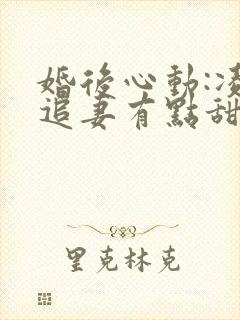 婚後心動:凌
追妻有點甜
里克林克